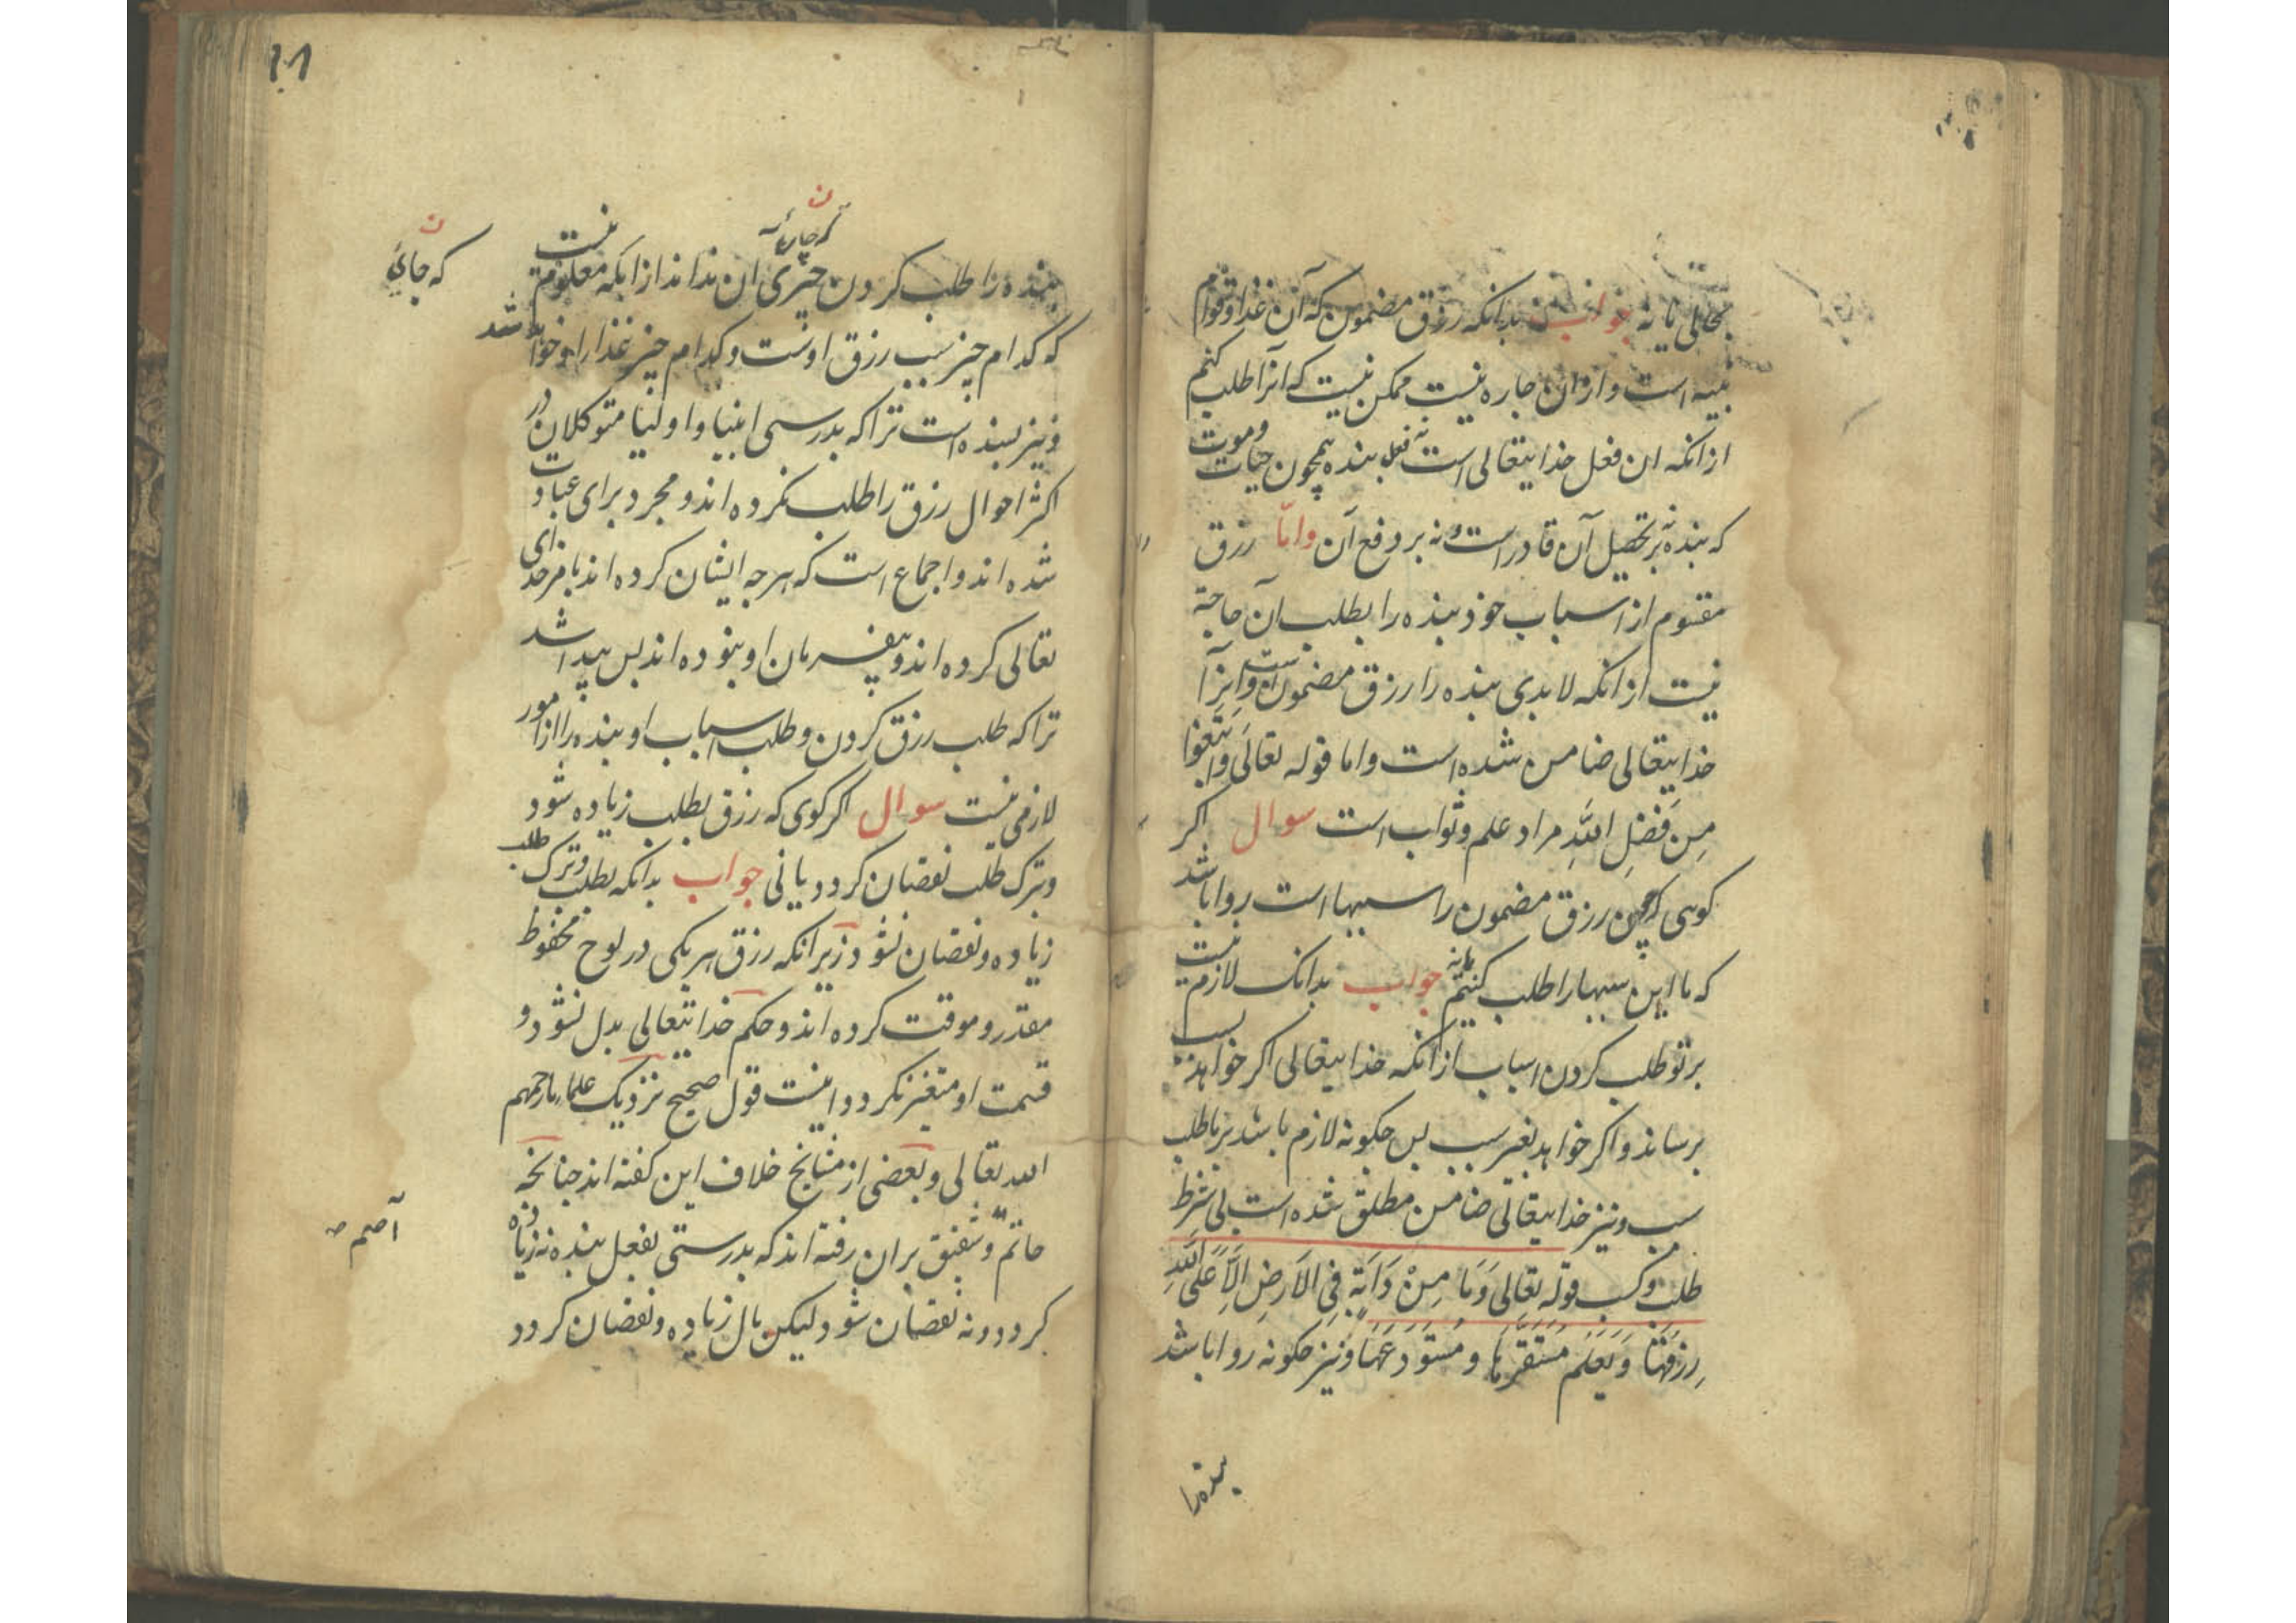 بحالی یا نه جواب بدانکه رزق مضمون که آن غذا و قوام
بنیه است و از وان جاره نیست ممکن نیست که آنرا طلب کنیم
ازانکه ان فعل خدایتعالی است نه فعل بنده همچون حیات وموت
که بنده نه بر تحصیل آن قادر است و نه بر دفع آن واما رزق
مقسوم از اسباب خود بنده را بطلب آن حاجة
نیست ازانکه لابدی بنده را رزق مضمون است واینرا
خدایتعالی ضامن شده است واما قوله تعالی وَابْتَغُوا
مِن فَضلِ اللهِ مراد علم و ثواب است سوال اکر
کوئی که چون رزق مضمون را سببها است روا باشد
که ما این سببها را طلب کنیم یا نه جواب بدانک لازم نیست
بر تو طلب کردن اسباب ازانکه خدایتعالی اکر خواهد بسبب
برساند و اکر خواهد بغیر سبب بس جکونه لازم باشد برما طلب
سبب و نیز خدایتعالی ضامن مطلق شده است بی شرط
طلب و کسب قوله تعالی وَمَا مِنْ دَابَةٍ فِی الاَرضِ اِلاَّ عَلَی اللهِ
رِزقُهَا وَ یَعلَم مُستَقَرَّهَا و مُستَودَعَهَا و نیز جکونه روا باشد
بنده را
۱۰۸
بنده را طلب کردن جیزی ان نداند از انکه معلوم نیست
که جای
که کدام جیز سبب رزق اوست و کدام جیز غذا را او خواهد شد
و نیز بسنده است ترا که بدرستی انبیا و اولیا متوکلان در
اکثر احوال رزق را طلب نکرده اند و مجرد برای عبادت
شده اند و اجماع است که هرجه ایشان کرده اند بامر خدای
تعالی کرده اند و بیفرمان او نبوده اند بس بیدا شد
ترا که طلب رزق کردن و طلب اسباب او بنده را از امور
لازمی نیست سوال اکر کوی که رزق بطلب زیاده شود
و بترک طلب نقصان کردد یا نی جواب بدانکه بطلب و ترک طلب
زیاده و نقصان نشود زیرانکه رزق هر یکی در لوح محفوظ
مقدر و موقت کرده اند و حکم خدایتعالی بدل نشود و
قسمت او متغیر نکردد اینست قول صحیح نزدیک علماء ما رحمهم
الله تعالی و بعضی از مشایخ خلاف این کفته اند جنانجه
حاتم و شقیق بران رفته اند که بدرستی بفعل بنده نه زیاده
آصم
کردد و نه نقصان شود لیکن مال زیاده و نقصان کردد